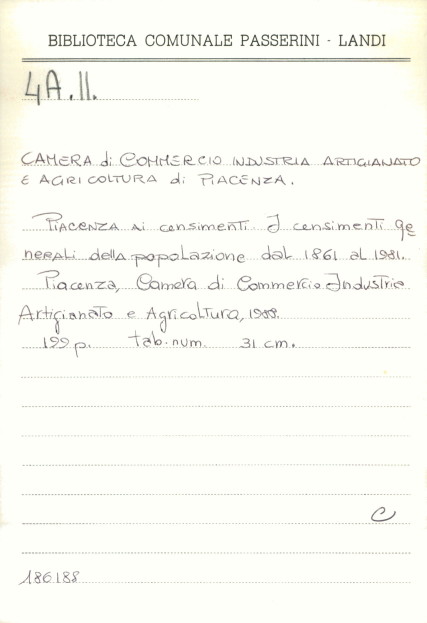 BIBLIOTECA COMUNALE PASSERINI - LANDI
4A.II.
CAMERA di COMMERCIO INDUSTRIA ARTIGIANATO
E AGRICOLTURA di PIACENZA.
PIACENZA AI censimenti. I censimenti ge
nerali della popolazione dal 1861 al 1981.
Piacenza, Camera di Commercio Industria
Artigianato e Agricoltura, 1988.
199 p. tab. num. 31 cm.
C
186188